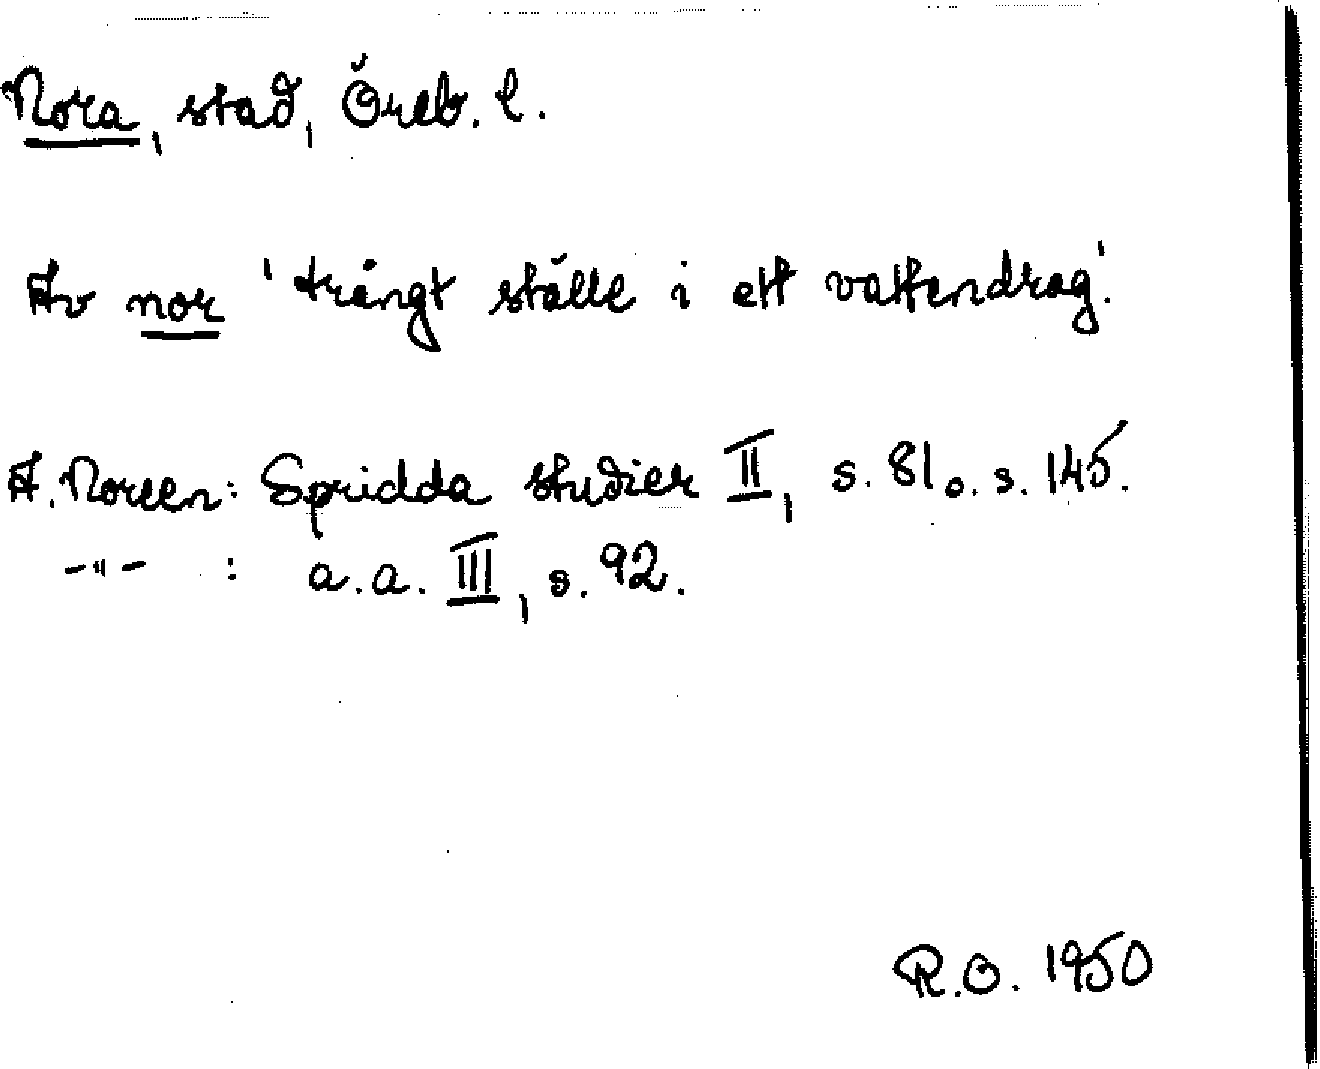 Nora, stad, Öreb. l.
Av nor 'trångt ställe i ett vattendrag'.
A. Noreen: Spridda studier II, s. 81 o. s. 145.
-"- : a.a. III, s. 92.
R.O. 1950